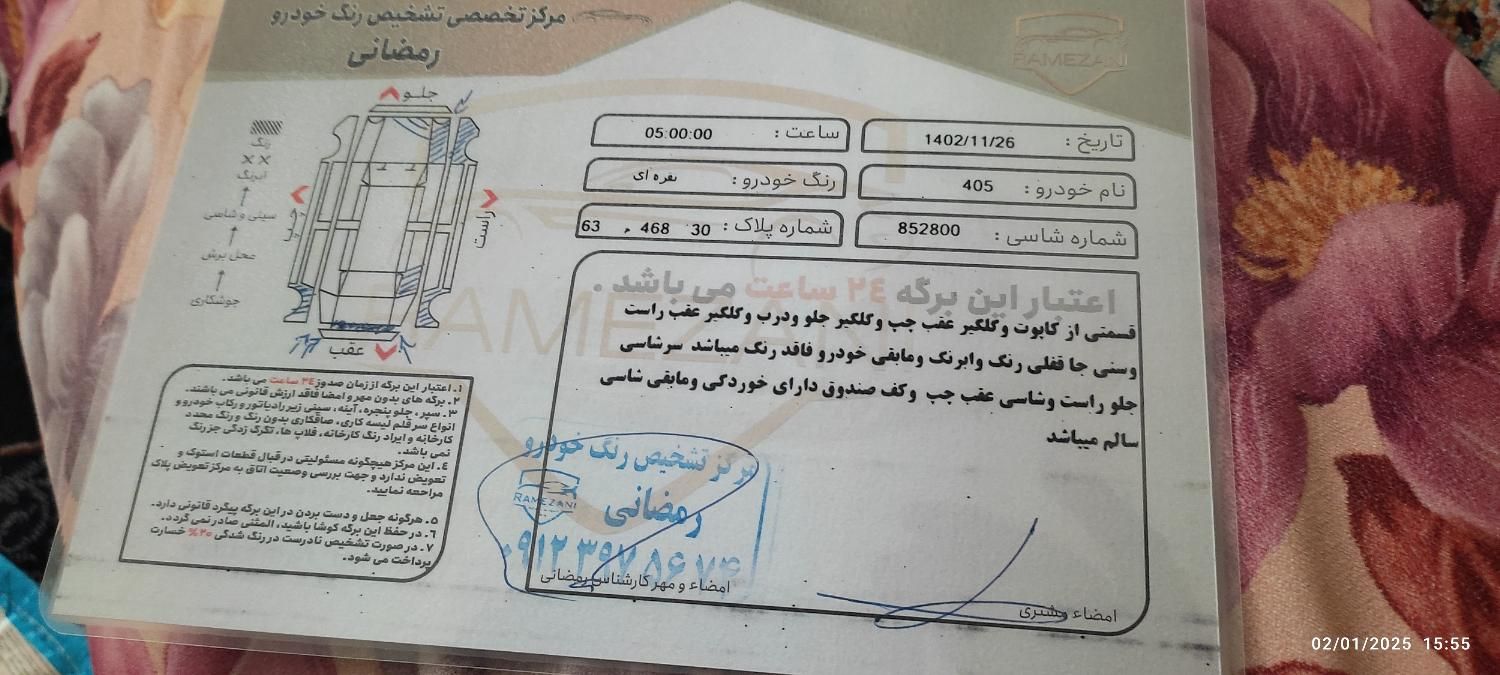 مرکز تخصصی تشخیص رنگ خودرو
رمضانی
RAMEZANI
تاریخ : 1402/11/26
ساعت : 05:00:00
نام خودرو : 405
رنگ خودرو : نقره ای
شماره شاسی : 852800
شماره پلاک : 30 468 م 63
جلو
رنگ
×× آبرنگ
سینی و شاسی
محل برش
جوشکاری
چپ
راست
عقب
اعتبار این برگه ۲۴ ساعت می باشد .
قسمتی از کاپوت وگلگیر عقب چپ وگلگیر جلو ودرب وگلگیر عقب راست
وسنی جا قفلی رنگ وابرنگ ومابقی خودرو فاقد رنگ میباشد سرشاسی
جلو راست وشاسی عقب چپ وکف صندوق دارای خوردگی ومابقی شاسی
سالم میباشد
۱. اعتبار این برگه از زمان صدور ۲۴ ساعت می باشد.
۲. برگه های بدون مهر و امضا فاقد ارزش قانونی می باشند.
۳. سپر، جلو پنجره، آینه، سینی زیر رادیاتور و رکاب خودرو و
انواع سرقلم لیسه کاری، صافکاری بدون رنگ و رنگ مجدد
کارخانه و ایراد رنگ کارخانه، قلاب ها، تگرگ زدگی جز رنگ
نمی باشد.
٤. این مرکز هیچگونه مسئولیتی در قبال قطعات استوک و
تعویض ندارد و جهت بررسی وضعیت اتاق به مرکز تعویض پلاک
مراجعه نمایید.
۵. هرگونه جعل و دست بردن در این برگه پیگرد قانونی دارد.
٦. در حفظ این برگه کوشا باشید، المثنی صادر نمی گردد.
۷. در صورت تشخیص نادرست در رنگ شدگی ۲۰% خسارت
پرداخت می شود.
مرکز تشخیص رنگ خودرو
رمضانی
RAMEZANI
۰۹۱۲ ۳۹۷ ۸۶ ۷۴
امضاء و مهر کارشناس رمضانی
امضاء مشتری
02/01/2025 15:55